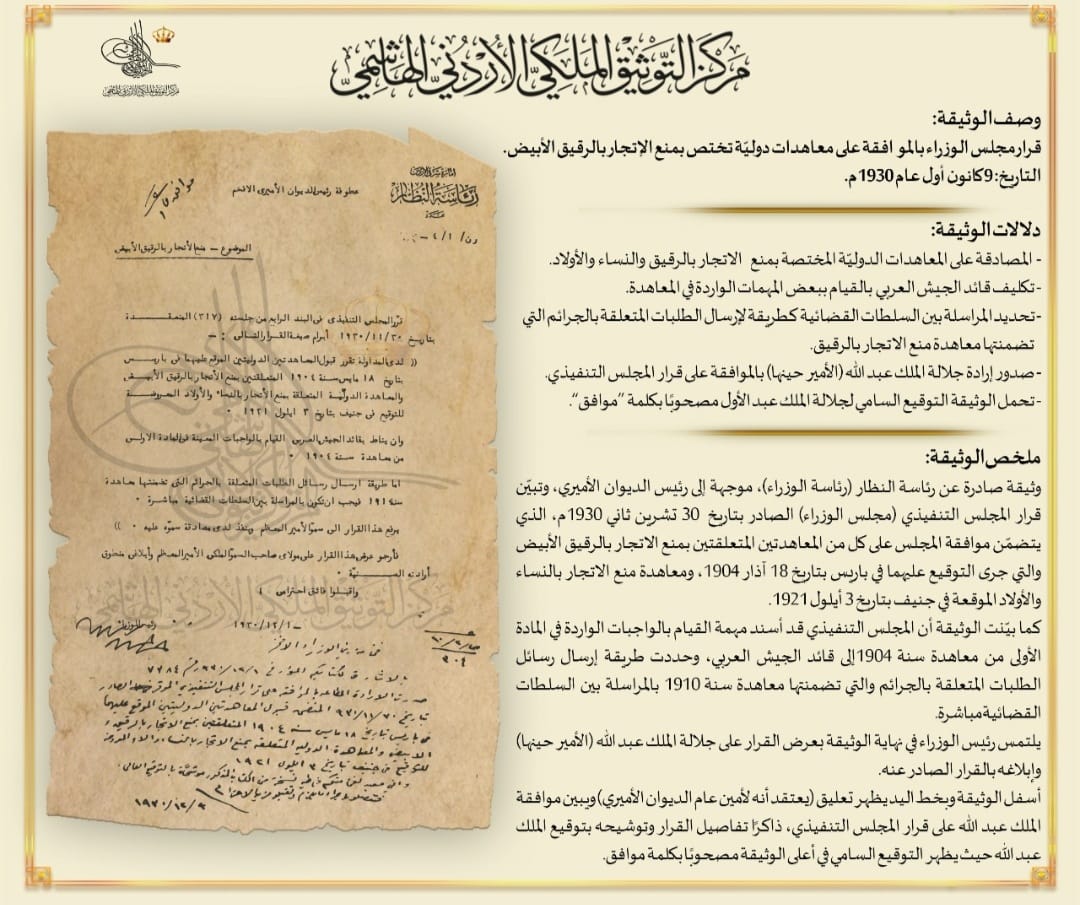 مركز التوثيق الملكي الأردني الهاشمي
مركز التوثيق الملكي الأردني الهاشمي
وصف الوثيقة:
قرار مجلس الوزراء بالموافقة على معاهدات دوليّة تختص بمنع الإتجار بالرقيق الأبيض.
التاريخ: 9 كانون أول عام 1930م.
دلالات الوثيقة:
- المصادقة على المعاهدات الدوليّة المختصة بمنع الاتجار بالرقيق والنساء والأولاد.
- تكليف قائد الجيش العربي بالقيام ببعض المهمات الواردة في المعاهدة.
- تحديد المراسلة بين السلطات القضائية كطريقة لإرسال الطلبات المتعلقة بالجرائم التي
تضمنتها معاهدة منع الاتجار بالرقيق.
- صدور إرادة جلالة الملك عبد الله (الأمير حينها) بالموافقة على قرار المجلس التنفيذي.
- تحمل الوثيقة التوقيع السامي لجلالة الملك عبد الأول مصحوبًا بكلمة "موافق".
ملخص الوثيقة:
وثيقة صادرة عن رئاسة النظار (رئاسة الوزراء)، موجهة إلى رئيس الديوان الأميري، وتبيّن
قرار المجلس التنفيذي (مجلس الوزراء) الصادر بتاريخ 30 تشرين ثاني 1930م، الذي
يتضمّن موافقة المجلس على كل من المعاهدتين المتعلقتين بمنع الاتجار بالرقيق الأبيض
والتي جرى التوقيع عليهما في باريس بتاريخ 18 آذار 1904، ومعاهدة منع الاتجار بالنساء
والأولاد الموقعة في جنيف بتاريخ 3 أيلول 1921.
كما بيّنت الوثيقة أن المجلس التنفيذي قد أسند مهمة القيام بالواجبات الواردة في المادة
الأولى من معاهدة سنة 1904 إلى قائد الجيش العربي، وحددت طريقة إرسال رسائل
الطلبات المتعلقة بالجرائم والتي تضمنتها معاهدة سنة 1910 بالمراسلة بين السلطات
القضائية مباشرة.
يلتمس رئيس الوزراء في نهاية الوثيقة بعرض القرار على جلالة الملك عبد الله (الأمير حينها)
وإبلاغه بالقرار الصادر عنه.
أسفل الوثيقة وبخط اليد يظهر تعليق (يعتقد أنه لأمين عام الديوان الأميري) ويبين موافقة
الملك عبد الله على قرار المجلس التنفيذي، ذاكرًا تفاصيل القرار وتوشيحه بتوقيع الملك
عبد الله حيث يظهر التوقيع السامي في أعلى الوثيقة مصحوبًا بكلمة موافق.
رئاسة النظار
عطوفة رئيس الديوان الأميري الافخم
الموضوع - منع الأتجار بالرقيق الأبيض
قرر المجلس التنفيذي في البند الرابع من جلسته (٣١٧) المنعقدة
بتاريخ ١٩٣٠/١١/٣٠ أبرام صيغة القرار التالي :-
(( لدى المداولة تقرر قبول المعاهدتين الدوليتين الموقع عليهما في باريس
بتاريخ ١٨ مايس سنة ١٩٠٤ المتعلقتين بمنع الأتجار بالرقيق الأبيض
والمعاهدة الدوليّة المتعلقة بمنع الأتجار بالنساء والأولاد المعروضة
للتوقيع في جنيف بتاريخ ٣ ايلول ١٩٢١ .
وان يناط بقائد الجيش العربي القيام بالواجبات المعينة في المادة الاولى
من معاهدة سنة ١٩٠٤ .
اما طريقة ارسال رسائل الطلبات المتعلقة بالجرائم التي تضمنتها معاهدة
سنة ١٩١٠ فيجب ان تكون بالمراسلة بين السلطات القضائية مباشرة .
يرفع هذا القرار الى سمو الأمير المعظم وينفذ لدى مصادقة سموه عليه . ))
فأرجو عرض هذا القرار على مولاي صاحب السمو الملكي الأمير المعظم وأبلاغي منطوق
أرادته السنية .
واقبلوا فائق احترامي ،
١٩٣٠/١٢/١- رئيس الوزراء
مركز التوثيق الملكي الأردني الهاشمي
فخامة رئيس الوزراء الافخم
بتاريخ ٩٣٠/١١/٣٠ المتضمن قبول المعاهدتين الدوليتين الموقع عليهما
في باريس بتاريخ ١٨ مايس سنة ١٩٠٤ المتعلقتين بمنع الاتجار بالرقيق
الابيض والمعاهدة الدولية المتعلقة بمنع الاتجار بالنساء والاولاد المعروضة
للتوقيع في جنيف بتاريخ ٣ ايلول ١٩٢١